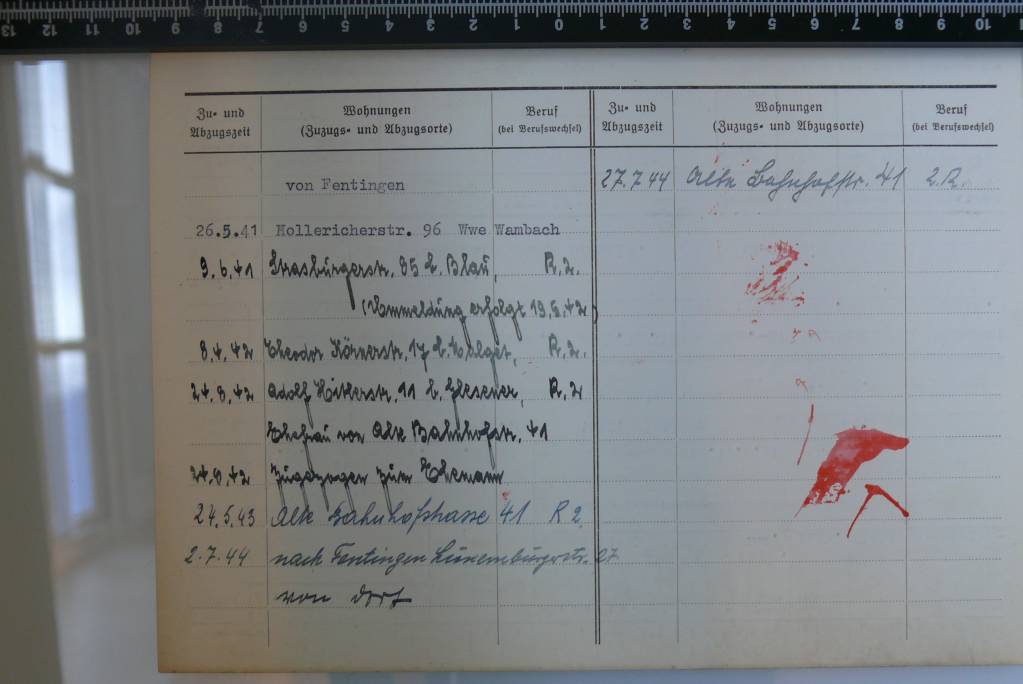 13 12 11 10 9 8 7 6 5 4 3 2 1 0 1 2 3 4 5 6 7 8 9 10
Zu- und Abzugszeit
Wohnungen (Zuzugs- und Abzugsorte)
Beruf (bei Berufswechsel)
Zu- und Abzugszeit
Wohnungen (Zuzugs- und Abzugsorte)
Beruf (bei Berufswechsel)
von Fentingen
26.5.41 Hollericherstr. 96 Wwe Wambach
9.6.41 Strasburgerstr. 85 b. Blau, R.2.
(Ummeldung erfolgt 19.5.42)
8.4.42 Theodor Körnerstr. 17 b. R.2.
24.8.42 Adolf Hitlerstr. 11 b. Glesener, R.2
Ehefrau von Alte Bahnhofstr. 41
24.8.42 zugezogen zum Ehemann
24.5.43 Alte Bahnhofstrasse 41 R 2.
2.7.44 nach Fentingen Luxemburgstr. 27
von dort
27.7.44 Alte Bahnhofstr. 41 2.R.